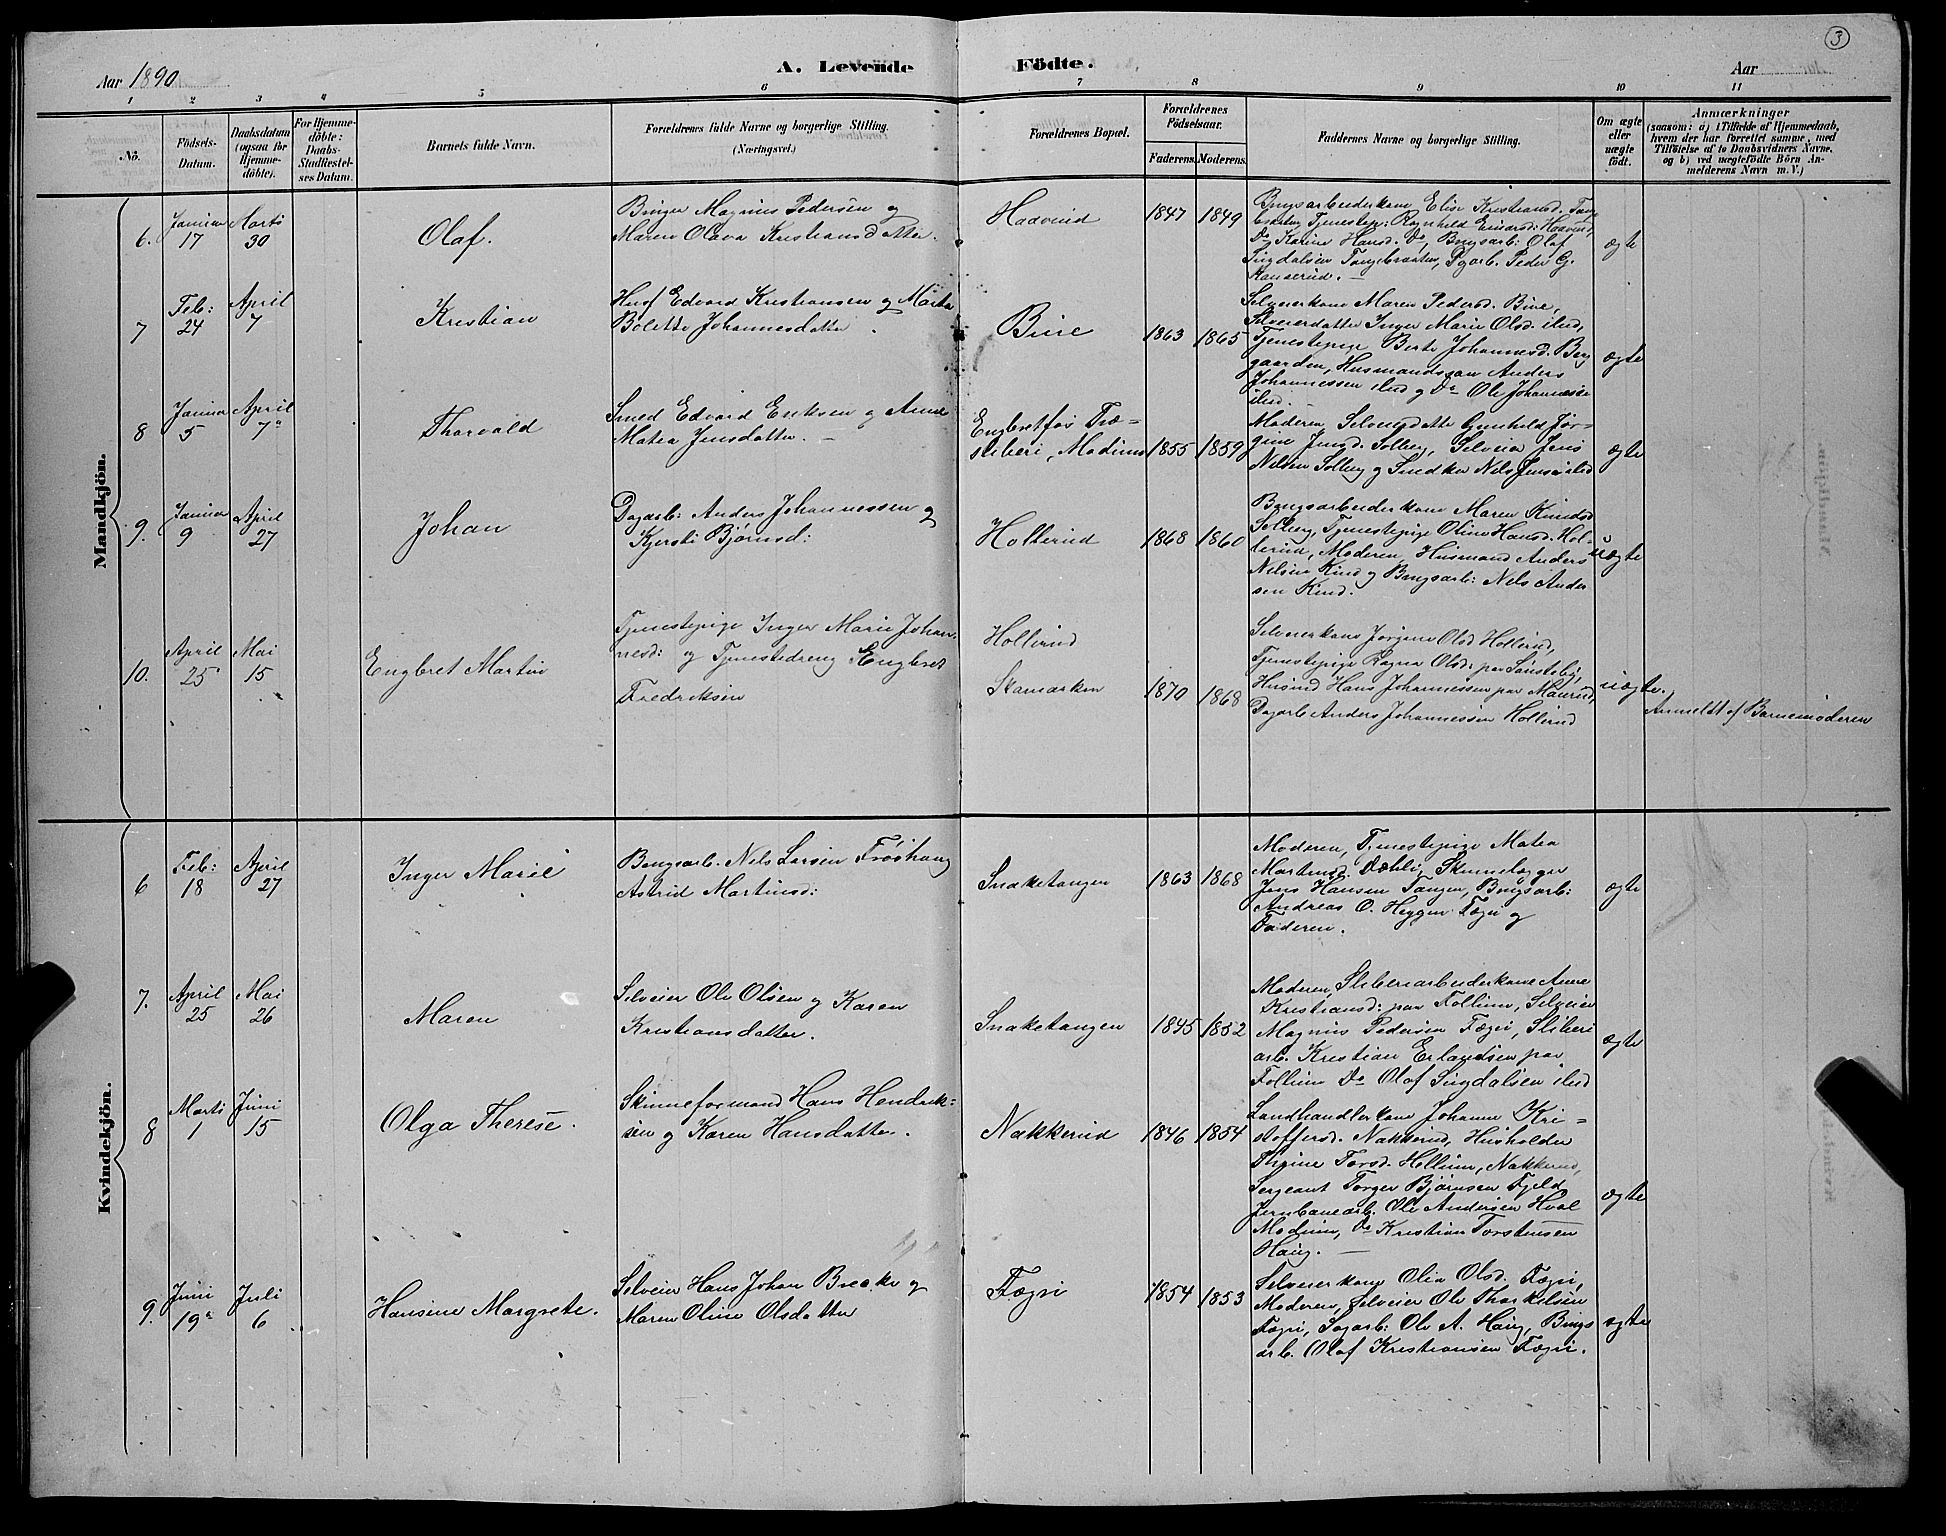 3
Aar 1890
A. Levende Födte.
Aar
1 2 3 4 5 6 7 8 9 10 11
No.
Födsels-Datum.
Daabsdatum (ogsaa for Hjemme-döbte).
For Hjemme-döbte: Daabs-Stadfæstel-ses Datum.
Barnets fulde Navn.
Forældrenes fulde Navne og borgerlige Stilling. (Næringsvei.)
Forældrenes Bopæl.
Forældrenes Födselsaar.
Faderens. Moderens.
Faddernes Navne og borgerlige Stilling.
Om ægte eller uægte födt.
Anmærkninger
(saasom: a) i Tilfælde af Hjemmedaab,
hvem der har forrettet samme, med
Tilföielse af to Daabsvidners Navne,
og b) ved uægtefödte Börn An-
melderens Navn m. V.)
Mandkjön.
6. Januar 17 Marts 30
Olaf.
Bruger Magnus Pedersen og
Maren Olava Kristiansdatter.
Hadvind
1847 1849
Brugsarbeiderkone Elise Kristiansd. Tange
braaten, Tjenestep: Ragnhild Einarsd: Hadvind,
Do Karine Hansd. Do, Brugsarb: Olaf
Singdalsen Tangebraaten, Dgarb. Peder G.
ægte
7 Feb: 24 April 7
Kristian
Husf Edvard Kristiansen og Marta
Bolette Johannesdatter.
Bure
1863 1865
Selveierkone Maren Pedersd. Bure,
Selveierdatter Inger Marie Olsd. ibid,
Tjenestepige Berte Johannesd. Berg
gaarden, Husmandssøn Anders
Johannessen ibid og Do Ole Johannesse
ibid.
ægte
8 Januar 5 April 7
Thorvald
Smed Edvard Eriksen og Anne
Matea Jensdatter.
Engbretfos Træ=
sliberi, Modum
1855 1859
Moderen, Gunhild Jør-
gine Jensd. Solberg, Selveier Jens
Nielsen Solberg og Nils Jensen ibid
ægte
9. Januar 9 April 27
Johan
Dagarb: Anders Johannessen og
Kjersti Bjørnsd:
Hollerud
1868 1860
Brugsarbeiderkone Maren Knudsd
Solberg, Tjenestepige Oline Hansd. Hol-
lerud, Moderen, Husmand Anders
Nilsen Rud og Brugsarb: Nels Ander
sen Rud.
uægte
10. April 25 Mai 15
Engbret Martin
Tjenestepige Inger Marie Johan
nesd: og Tjenestedreng Engbret
Fredriksen
Hollerud
Skamarken
1870 1868
Selveierkone Jørgine Olsd Hollerud,
Tjenestepige Ragna Olsd: paa Sønsteby,
Husmd Hans Johannessen paa Maurud,
Dagarb Anders Johannessen Hollerud
uægte.
Anmeldt af Barnemoderen
Kvindekjön.
6 Feb: 18 April 27
Inger Marie
Brugsarb. Nels Larsen Frøshaug
Astrid Martinsd:
Snaketangen
1863 1868
Moderen, Tjenestepige Matea
Martinsd. Dæhli, Skinnelægger
Jens Hansen Tangen, Brugsarb:
Andreas O. Heggen Fægri og
Faderen.
ægte
7. April 25 Mai 26
Maren
Selveier Ole Olsen og Karen
Kristiansdatter.
Snaketangen
1845 1852
Moderen, Sliberiarbeiderkone Anne
Kristiansd: paa Follum, Selveier
Magnus Pedersen Fægri, Sliberi
arb. Kristian Erlandsen paa
Follum Do Olaf Singdalsen ibid
ægte
8 Marts 1 Juni 15
Olga Therese.
Skinneformand Hans Hendrik=
sen og Karen Hansdatter.
Nakkerud
1846 1854
Landhandlerkone Johanne Kri=
stoffersd. Nakkerud, Husholder
Torsd. Hellum, Nakkerud,
Sergeant Torger Bjørnsen Fjeld
Jernbanearb. Ole Andersen Hval
Modum, Do Kristian Torstensen
Haug.
ægte
9. Juni 19 Juli 6
Hansine Margrete.
Selveier Hans Johan Brække og
Maren Oline Olsdatter
Fægri
1854 1853
Selveierkone Olia Olsd. Fægri,
Moderen, Selveier Ole Thorkelsen
Fægri, Sagarb: Ole A. Haug, Brugs
arb. Olaf Kristiansen Fægri.
ægte